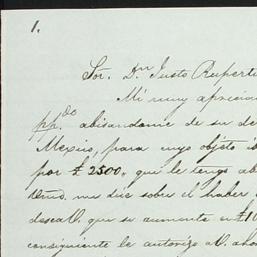 1.
Sor. Dn Justo Ruperti
Mi muy apreciad
abisandome de su de
Mexico, para cuyo objeto
por £ 2500,, que le tengo ab
me dice sobre el haber
desea V. que se aumente a £10
consiguiente le autorizo a V. aho